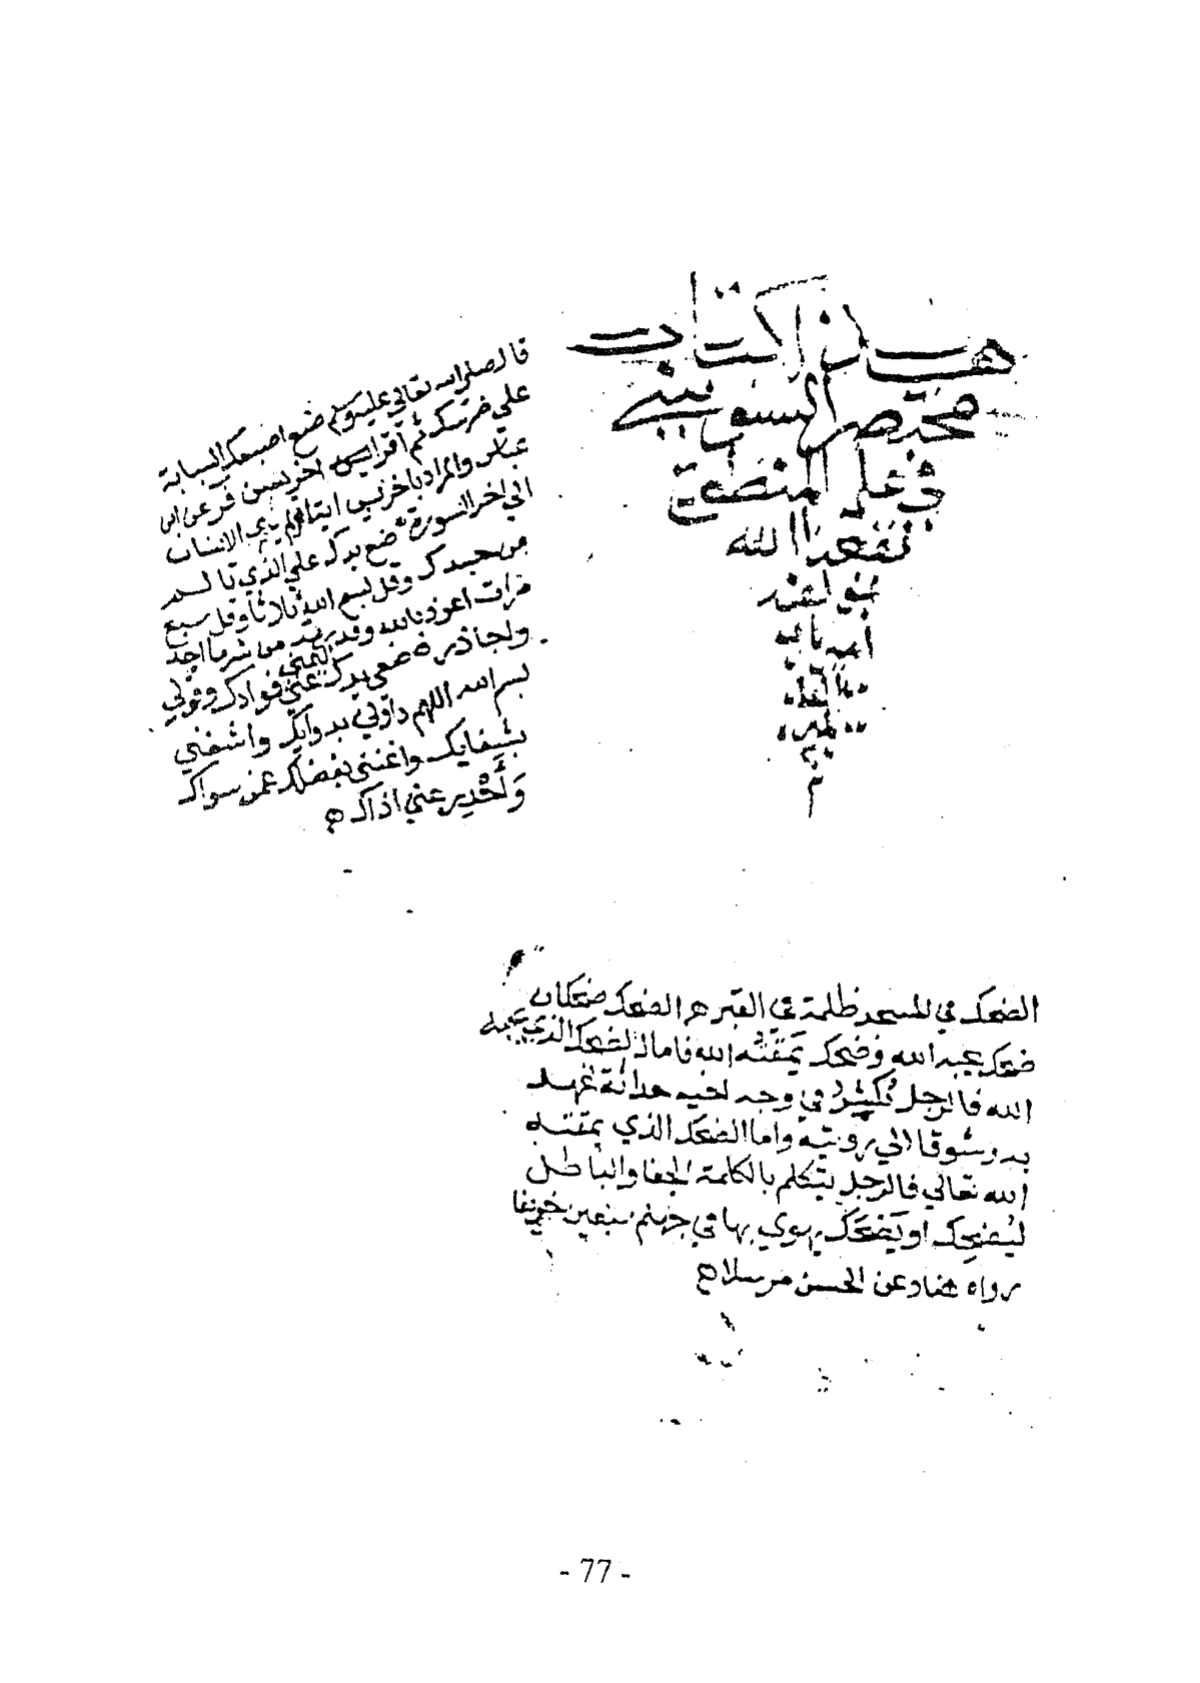 هذا كتاب
مختصر السنوسي
في علم المنطق
نفعنا الله
به
امين
قال صلى الله تعالى عليه وسلم ضع اصبعك السبابة
على ضرسك ثم اقرا يس فر عن ابن
عباس والمراد باخر يس اولم ير الانسان
الى اخر السورة ضع يدك على الذي تالم
من جسدك وقل بسم الله ثلاثا وقل سبع
مرات اعوذ بالله وقدرته من شر ما اجد
واحاذر ضعي يدك اليمنى على فوادك وقولي
بسم الله اللهم داوني بدوايك واشفني
بشفايك واغنني بفضلك عمن سواك
وَأَحْدِر عني اذاك ه
الضحك في المسجد ظلمة في القبر ه الضحك ضحكان
ضحك يحبه الله وضحك يمقته الله فاما الضحك الذي يحبه
الله فالرجل يكشر في وجه اخيه حداثة عهد
به وشوقا الى رويته واما الضحك الذي يمقته
الله تعالى فالرجل يتكلم بالكلمة الجفا والباطل
ليضحك او يضحك يهوي بها في جهنم سبعين خريفا
رواه هناد عن الحسن مرسلا ه
- 77 -